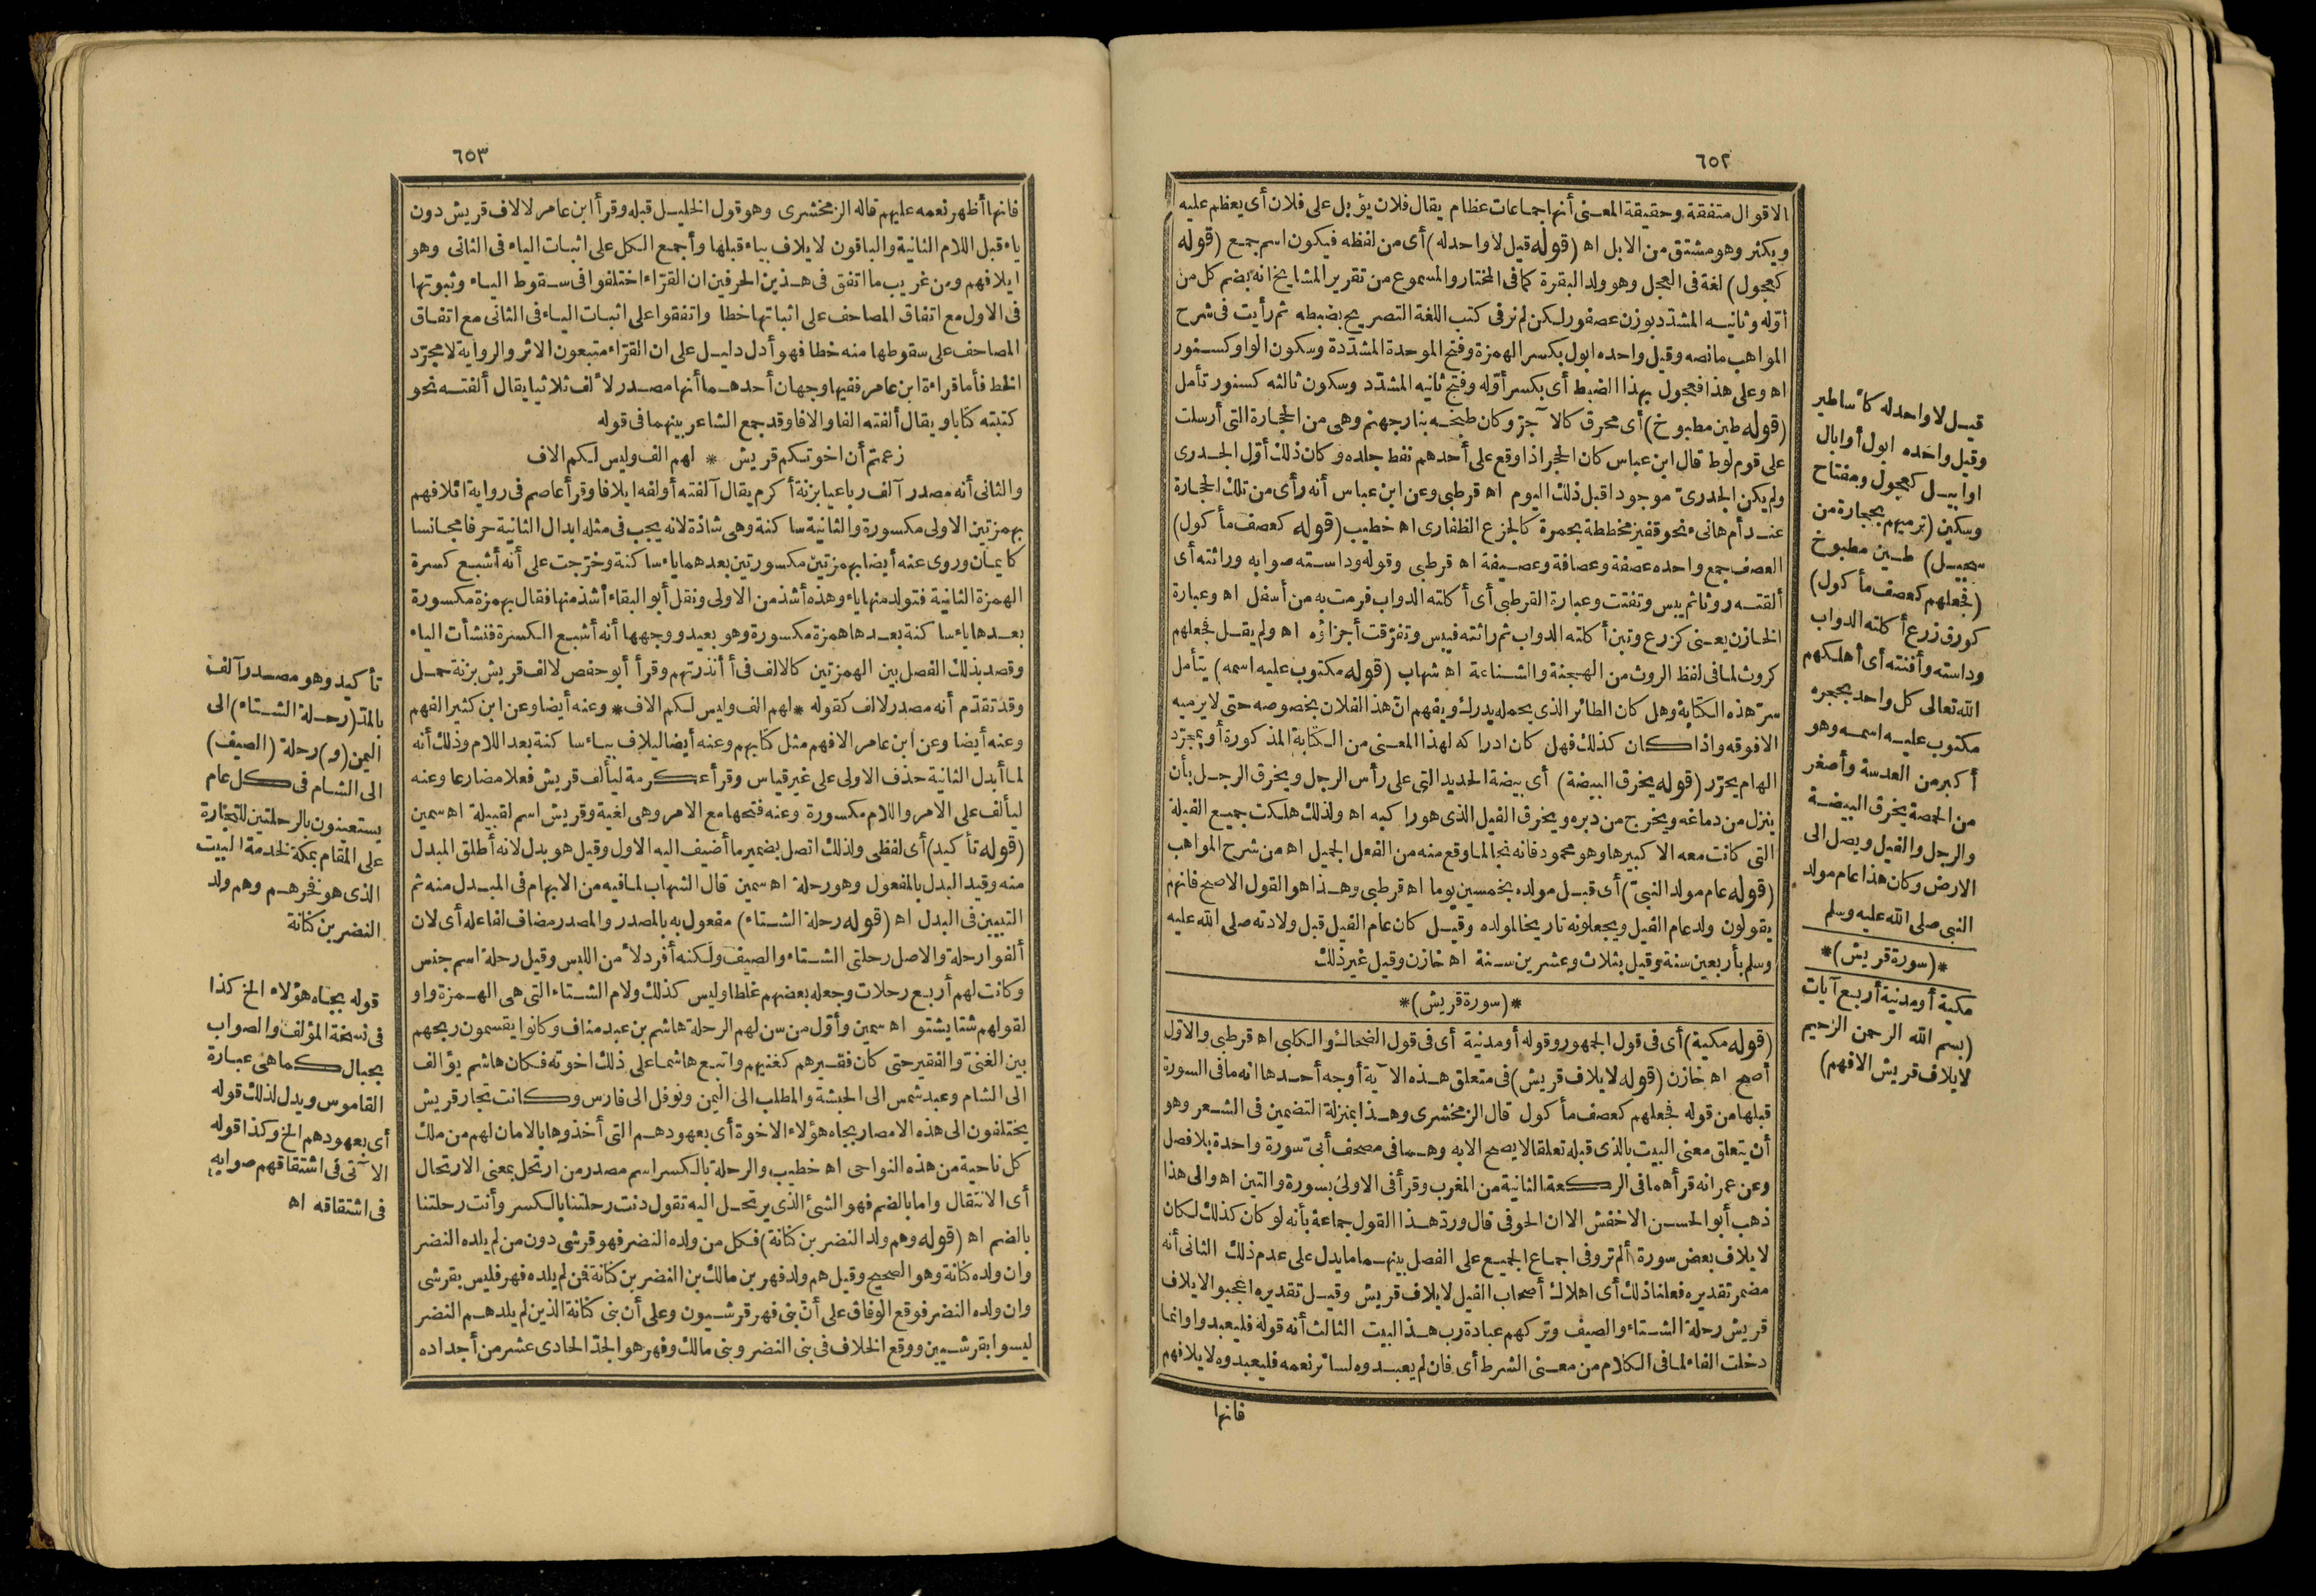 ٦٥٢
الاقوال متفقة وحقيقة المعنى أنها جماعات عظام يقال فلان يؤبل على فلان أى يعظم عليه
ويكثر وهو مشتق من الابل اه (قوله قيل لا واحد له) أى من لفظه فيكون اسم جمع (قوله
كعجول) لغة فى العجل وهو ولد البقرة كما فى المختار والمسموع من تقرير المشايخ انه بضم كل من
أوّله وثانيه المشدّد بوزن عصفور لكن لم نر فى كتب اللغة التصريح بضبطه ثم رأيت فى شرح
المواهب ما نصه وقيل واحده ابول بكسر الهمزة وفتح الموحدة المشدّدة وسكون الواو كسنور
اه وعلى هذا فعجول بهذا الضبط أى بكسر أوّله وفتح ثانيه المشدّد وسكون ثالثه كسنور تأمل
(قوله طين مطبوخ) أى محرق كالآجرّ وكان طبخه بنار جهنم وهى من الحجارة التى أرسلت
على قوم لوط قال ابن عباس كان الحجر اذا وقع على أحدهم نفط جلده وكان ذلك أوّل الجدرى
ولم يكن الجدرىّ موجودا قبل ذلك اليوم اه قرطبى وعن ابن عباس أنه رأى من تلك الحجارة
عند أم هانىء نحو قفيز مخططة بحمرة كالجزع الظفارى اه خطيب (قوله كعصف مأكول)
العصف جمع واحده عصفة وعصافة وعصيفة اه قرطبى وقوله وداسته صوابه وراثته أى
ألقته روثا ثم يبس وتفتت وعبارة القرطبى أى أكلته الدواب فرمت به من أسفل اه وعبارة
الخازن يعنى كزرع وتبن أكلته الدواب ثم راثته فيبس وتفرّقت أجزاؤه اه ولم يقل فجعلهم
كروث لما فى لفظ الروث من الهجنة والشناعة اه شهاب (قوله مكتوب عليه اسمه) يتأمل
سرّ هذه الكتابة وهل كان الطائر الذى يحمله يدرك ويفهم انّ هذا الفلان بخصوصه حتى لا يرميه
الا فوقه واذا كان كذلك فهل كان ادراكه لهذا المعنى من الكتابة المذكورة أو بمجرّد
الهام يحرّر (قوله يخرق البيضة) أى بيضة الحديد التى على رأس الرجل ويخرق الرجل بأن
ينزل من دماغه ويخرج من دبره ويخرق الفيل الذى هو راكبه اه ولذلك هلكت جميع الفيلة
التى كانت معه الا كبيرها وهو محمود فانه نجا لما وقع منه من الفعل الجميل اه من شرح المواهب
(قوله عام مولد النبىّ) أى قبل مولده بخمسين يوما اه قرطبى وهذا هو القول الاصح فانهم
يقولون ولد عام الفيل ويجعلونه تاريخا لمولده وقيل كان عام الفيل قبل ولادته صلى الله عليه
وسلم بأربعين سنة وقيل بثلاث وعشرين سنة اه خازن وقيل غير ذلك
*(سورة قريش)*
(قوله مكية) أى فى قول الجمهور وقوله أو مدنية أى فى قول الضحاك والكلبى اه قرطبى والاوّل
أصح اه خازن (قوله لايلاف قريش) فى متعلق هذه الآية أوجه أحدها انه ما فى السورة
قبلها من قوله فجعلهم كعصف مأكول قال الزمخشرى وهذا بمنزلة التضمين فى الشعر وهو
أن يتعلق معنى البيت بالذى قبله تعلقا لا يصح الا به وهما فى مصحف أبىّ سورة واحدة بلا فصل
وعن عمر انه قرأهما فى الركعة الثانية من المغرب وقرأ فى الاولى بسورة والتين اه والى هذا
ذهب أبو الحسن الاخفش الا ان الحوفى قال وردّ هذا القول جماعة بأنه لو كان كذلك لكان
لايلاف بعض سورة ألم تر وفى اجماع الجميع على الفصل بينهما ما يدل على عدم ذلك الثانى أنه
مضمر تقديره فعلنا ذلك أى اهلاك أصحاب الفيل لايلاف قريش وقيل تقديره اعجبوا لايلاف
قريش رحلة الشتاء والصيف وتركهم عبادة رب هذا البيت الثالث أنه قوله فليعبدوا وانما
دخلت الفاء لما فى الكلام من معنى الشرط أى فان لم يعبدوه لسائر نعمه فليعبدوه لايلافهم
فانها
قيل لا واحد له كأساطير
وقيل واحده ابول أو ابال
أو ابيل كعجول ومفتاح
وسكين (ترميهم بحجارة من
سجيل) طين مطبوخ
(فجعلهم كعصف مأكول)
كورق زرع أكلته الدواب
وداسته وأفنته أى أهلكهم
الله تعالى كل واحد بحجره
مكتوب عليه اسمه وهو
أكبر من العدسة وأصغر
من الحمصة يخرق البيضة
والرجل والفيل ويصل الى
الارض وكان هذا عام مولد
النبى صلى الله عليه وسلم
*(سورة قريش)*
مكية أو مدنية أربع آيات
(بسم الله الرحمن الرحيم
لايلاف قريش الافهم)
٦٥٣
فانها أظهر نعمه عليهم قاله الزمخشرى وهو قول الخليل قبله وقرأ ابن عامر لالاف قريش دون
ياء قبل اللام الثانية والباقون لايلاف بياء قبلها وأجمع الكل على اثبات الياء فى الثانى وهو
ايلافهم ومن غريب ما اتفق فى هذين الحرفين ان القرّاء اختلفوا فى سقوط الياء وثبوتها
فى الاول مع اتفاق المصاحف على اثباتها خطا واتفقوا على اثبات الياء فى الثانى مع اتفاق
المصاحف على سقوطها منه خطا فهو أدل دليل على ان القرّاء متبعون الاثر والرواية لا مجرّد
الخط فأما قراءة ابن عامر ففيها وجهان أحدهما أنها مصدر لألف ثلاثيا يقال ألفته نحو
كتبته كتابا ويقال ألفته الفا والافا وقد جمع الشاعر بينهما فى قوله
زعمتم أن اخوتكم قريش * لهم الف وليس لكم الاف
والثانى أنه مصدر آلف رباعيا بزنة أكرم يقال آلفته أولفه ايلافا وقرأ عاصم فى رواية ائلافهم
بهمزتين الاولى مكسورة والثانية ساكنة وهى شاذة لانه يجب فى مثله ابدال الثانية حرفا مجانسا
كايمان وروى عنه أيضا بهمزتين مكسورتين بعدهما ياء ساكنة وخرّجت على أنه أشبع كسرة
الهمزة الثانية فتولد منها ياء وهذه أشذ من الاولى ونقل أبو البقاء أشذ منها فقال بهمزة مكسورة
بعدها ياء ساكنة بعدها همزة مكسورة وهو بعيد ووجهها أنه أشبع الكسرة فنشأت الياء
وقصد بذلك الفصل بين الهمزتين كالالف فى أأنذرتهم وقرأ أبو حفص لالف قريش بزنة حمل
وقد تقدّم أنه مصدر لالف كقوله *لهم الف وليس لكم الاف* وعنه أيضا وعن ابن كثير الفهم
وعنه أيضا وعن ابن عامر الافهم مثل كتابهم وعنه أيضا ليلاف بياء ساكنة بعد اللام وذلك أنه
لما أبدل الثانية حذف الاولى على غير قياس وقرأ عكرمة ليألف قريش فعلا مضارعا وعنه
ليألف على الامر واللام مكسورة وعنه فتحها مع الامر وهى لغية وقريش اسم لقبيلة اه سمين
(قوله تأكيد) أى لفظى ولذلك اتصل بضمير ما أضيف اليه الاول وقيل هو بدل لانه أطلق المبدل
منه وقيد البدل بالمفعول وهو رحلة اه سمين قال الشهاب لما فيه من الابهام فى المبدل منه ثم
التبيين فى البدل اه (قوله رحلة الشتاء) مفعول به بالمصدر والمصدر مضاف لفاعله أى لان
ألفوا رحلة والاصل رحلتى الشتاء والصيف ولكنه أفرد لأمن اللبس وقيل رحلة اسم جنس
وكانت لهم أربع رحلات وجعله بعضهم غلطا وليس كذلك ولام الشتاء التى هى الهمزة واو
لقولهم شتا يشتو اه سمين وأوّل من سن لهم الرحلة هاشم بن عبد مناف وكانوا يقسمون ربحهم
بين الغنىّ والفقير حتى كان فقيرهم كغنيهم واتبع هاشما على ذلك اخوته فكان هاشم يؤالف
الى الشام وعبد شمس الى الحبشة والمطلب الى اليمن ونوفل الى فارس وكانت تجار قريش
يختلفون الى هذه الامصار بجاه هؤلاء الاخوة أى بعهودهم التى أخذوها بالامان لهم من ملك
كل ناحية من هذه النواحى اه خطيب والرحلة بالكسر اسم مصدر من ارتحل بمعنى الارتحال
أى الانتقال واما بالضم فهو الشئ الذى يرتحل اليه تقول دنت رحلتنا بالكسر وأنت رحلتنا
بالضم اه (قوله وهم ولد النضر بن كنانة) فكل من ولده النضر فهو قرشى دون من لم يلده النضر
وان ولده كنانة وهو الصحيح وقيل هم ولد فهر بن مالك بن النضر بن كنانة فمن لم يلده فهر فليس بقرشى
وان ولده النضر فوقع الوفاق على أنّ بنى فهر قرشيون وعلى أن بنى كنانة الذين لم يلدهم النضر
ليسوا بقرشيين ووقع الخلاف فى بنى النضر وبنى مالك وفهر هو الجدّ الحادى عشر من أجداده
تأكيد وهو مصدر آلف
بالمدّ (رحلة الشتاء) الى
اليمن (و) رحلة (الصيف)
الى الشام فى كل عام
يستعينون بالرحلتين للتجارة
على المقام بمكة لخدمة البيت
الذى هو فخرهم وهم ولد
النضر بن كنانة
قوله بجاه هؤلاء الخ كذا
فى نسخة المؤلف والصواب
بحبال كما هى عبارة
القاموس ويدل لذلك قوله
أى بعهودهم الخ وكذا قوله
الآتى فى اشتقاقهم صوابه
فى اشتقاقه اه